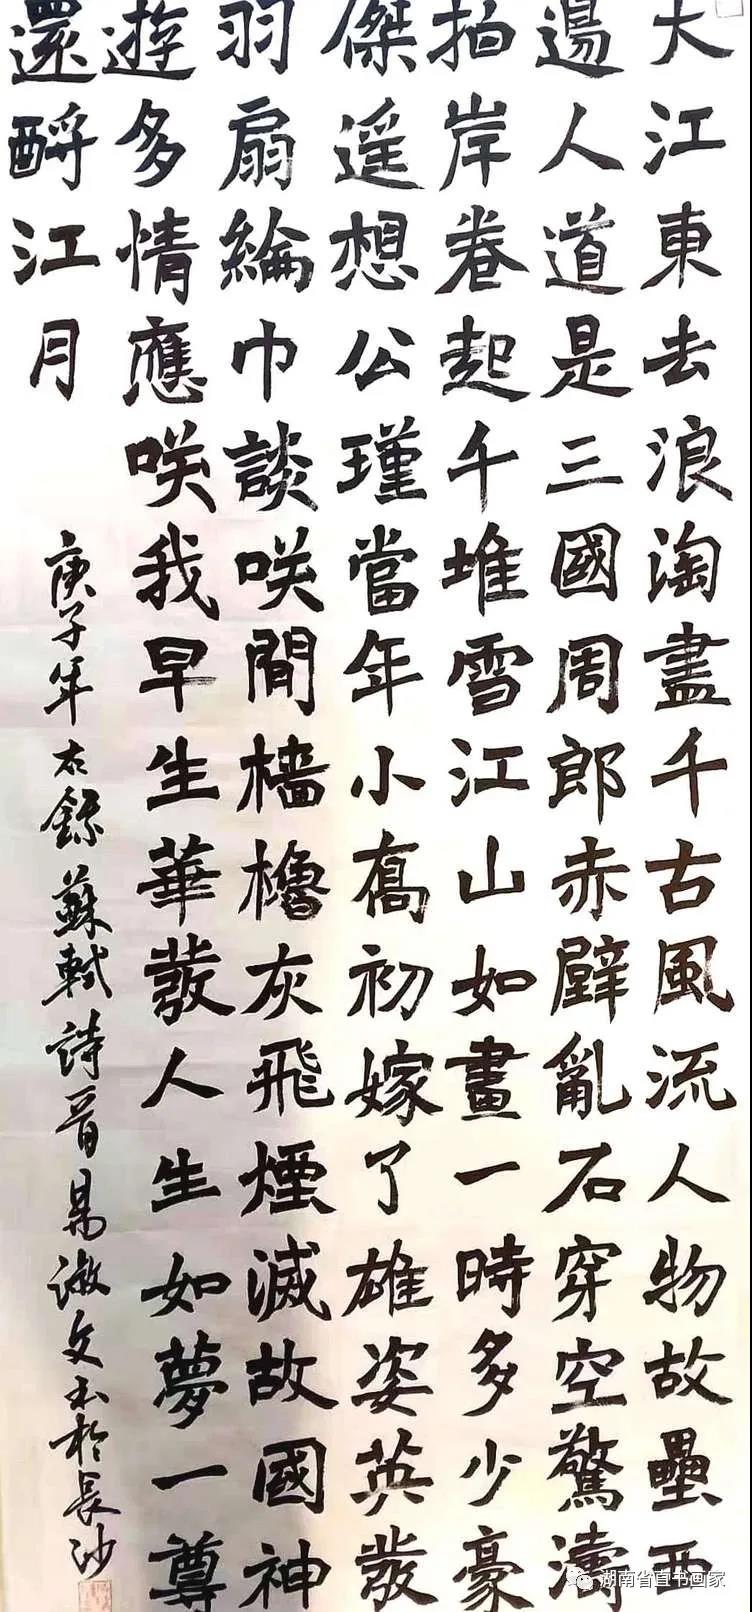 大江東去浪淘盡千古風流人物故壘西
邊人道是三國周郎赤壁亂石穿空驚濤
拍岸卷起千堆雪江山如畫一時多少豪
傑遥想公瑾當年小喬初嫁了雄姿英發
羽扇綸巾談咲間檣櫓灰飛煙滅故國神
遊多情應咲我早生華發人生如夢一尊
還酹江月
庚子年錄蘇軾詩一首易淑文书於長沙
湖南省直书画家